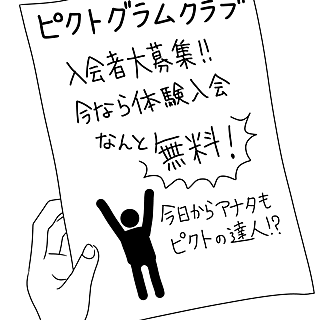 ピクトグラムクラブ
入会者大募集!!
今なら体験入会
なんと無料!
今日からアナタも
ピクトの達人!?